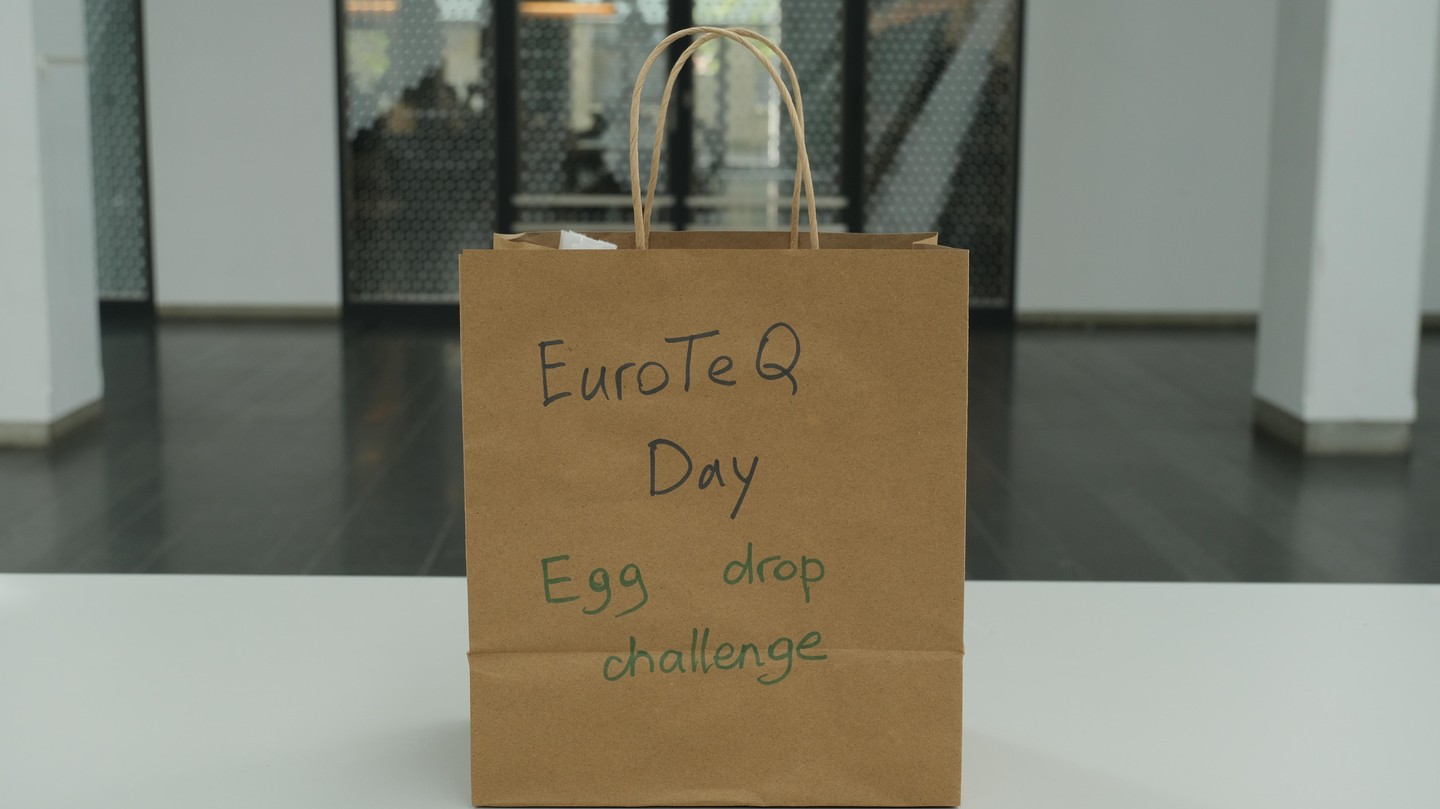 EuroTeQ
Day
Egg drop
challenge